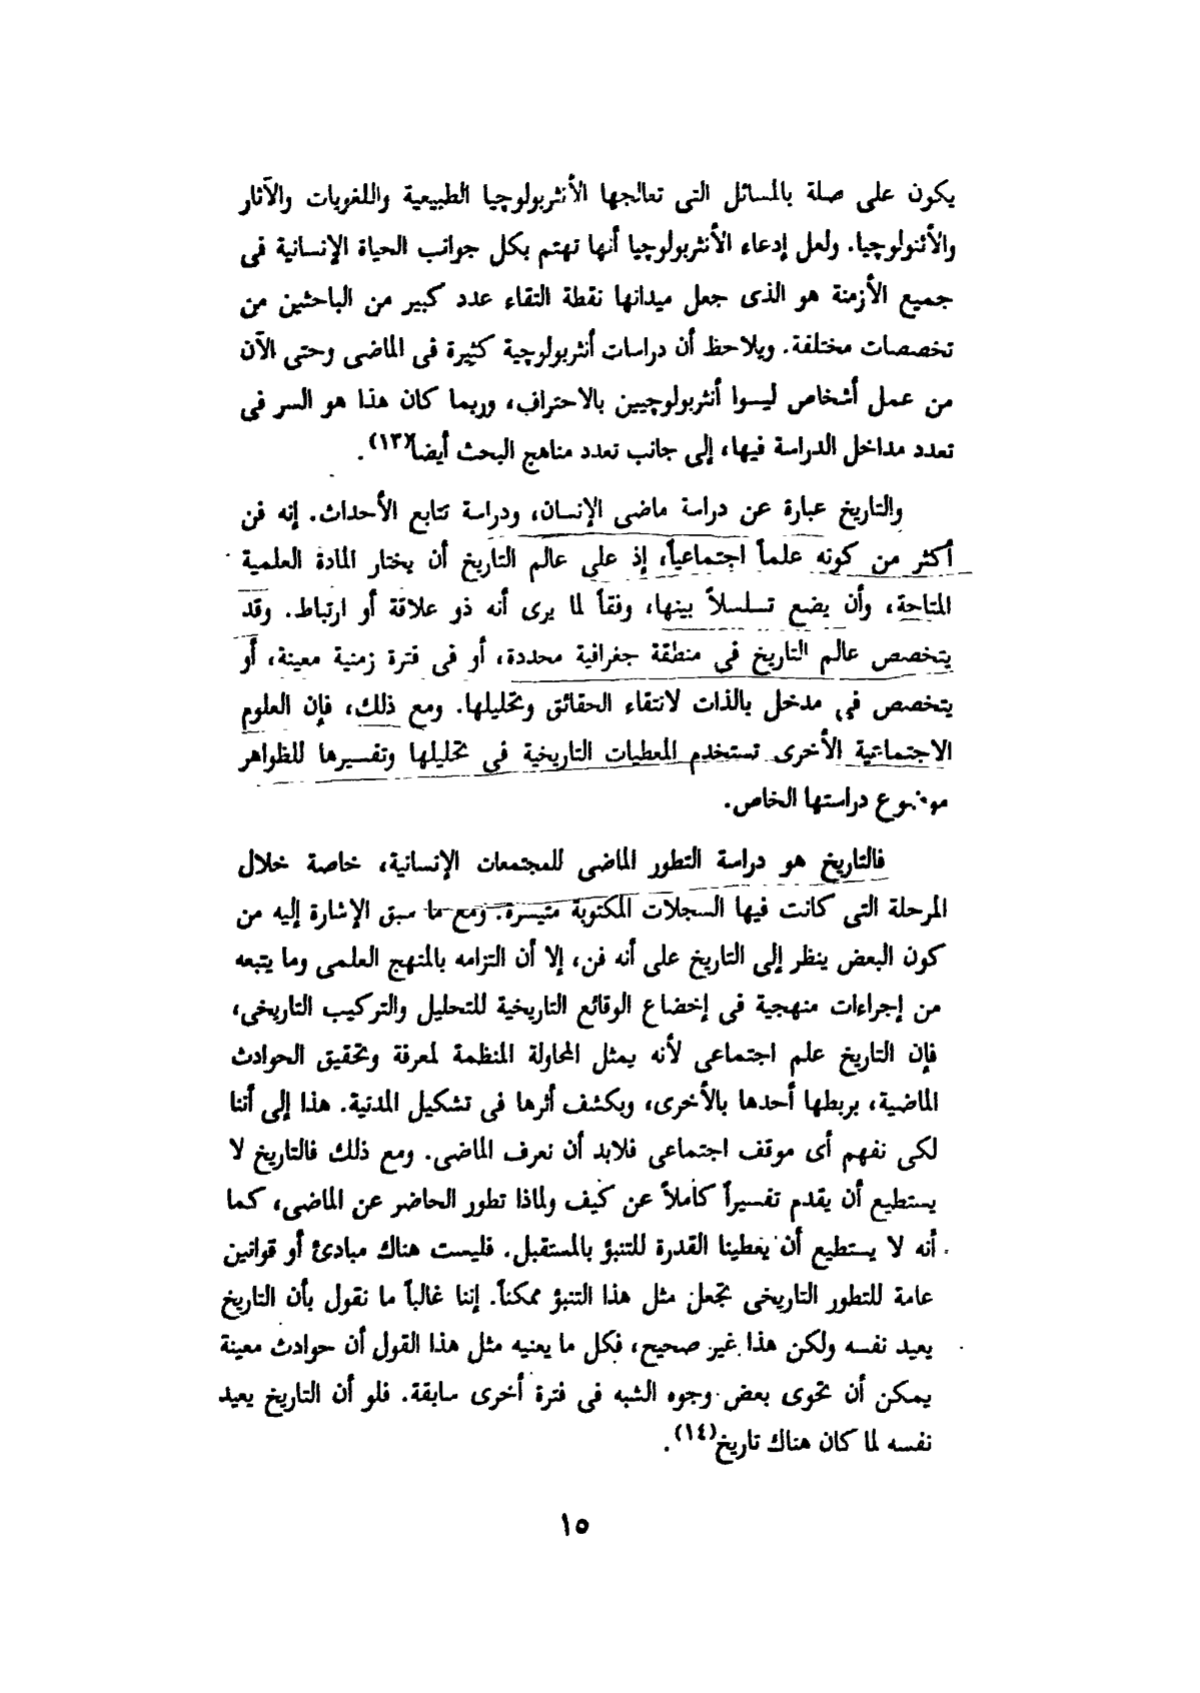 يكون على صلة بالمسائل التى تعالجها الأنثربولوچيا الطبيعية واللغويات والآثار
والأثنولوچيا. ولعل إدعاء الأنثربولوچيا أنها تهتم بكل جوانب الحياة الإنسانية فى
جميع الأزمنة هو الذى جعل ميدانها نقطة التقاء عدد كبير من الباحثين من
تخصصات مختلفة. ويلاحظ أن دراسات أنثربولوچية كثيرة فى الماضى وحتى الآن
من عمل أشخاص ليسوا أنثربولوچيين بالاحتراف، وربما كان هذا هو السر فى
تعدد مداخل الدراسة فيها، إلى جانب تعدد مناهج البحث أيضا(١٣).
والتاريخ عبارة عن دراسة ماضى الإنسان، ودراسة تتابع الأحداث. إنه فن
أكثر من كونه علماً اجتماعياً، إذ على عالم التاريخ أن يختار المادة العلمية
المتاحة، وأن يضع تسلسلاً بينها، وفقاً لما يرى أنه ذو علاقة أو ارتباط. وقد
يتخصص عالم التاريخ فى منطقة جغرافية محددة، أو فى فترة زمنية معينة، أو
يتخصص فى مدخل بالذات لانتقاء الحقائق وتحليلها. ومع ذلك، فإن العلوم
الاجتماعية الأخرى تستخدم المعطيات التاريخية فى تحليلها وتفسيرها للظواهر
موضوع دراستها الخاص.
فالتاريخ هو دراسة التطور الماضى للمجتمعات الإنسانية، خاصة خلال
المرحلة التى كانت فيها السجلات المكتوبة متيسرة. ومع ما سبق الإشارة إليه من
كون البعض ينظر إلى التاريخ على أنه فن، إلا أن التزامه بالمنهج العلمى وما يتبعه
من إجراءات منهجية فى إخضاع الوقائع التاريخية للتحليل والتركيب التاريخى،
فإن التاريخ علم اجتماعى لأنه يمثل المحاولة المنظمة لمعرفة وتحقيق الحوادث
الماضية، بربطها أحدها بالأخرى، ويكشف أثرها فى تشكيل المدنية. هذا إلى أننا
لكى نفهم أى موقف اجتماعى فلابد أن نعرف الماضى. ومع ذلك فالتاريخ لا
يستطيع أن يقدم تفسيراً كاملاً عن كيف ولماذا تطور الحاضر عن الماضى، كما
أنه لا يستطيع أن يعطينا القدرة للتنبؤ بالمستقبل. فليست هناك مبادئ أو قوانين
عامة للتطور التاريخى تجعل مثل هذا التنبؤ ممكناً. إننا غالباً ما نقول بأن التاريخ
يعيد نفسه ولكن هذا غير صحيح، فكل ما يعنيه مثل هذا القول أن حوادث معينة
يمكن أن تحوى بعض وجوه الشبه فى فترة أخرى سابقة. فلو أن التاريخ يعيد
نفسه لما كان هناك تاريخ(١٤).
١٥